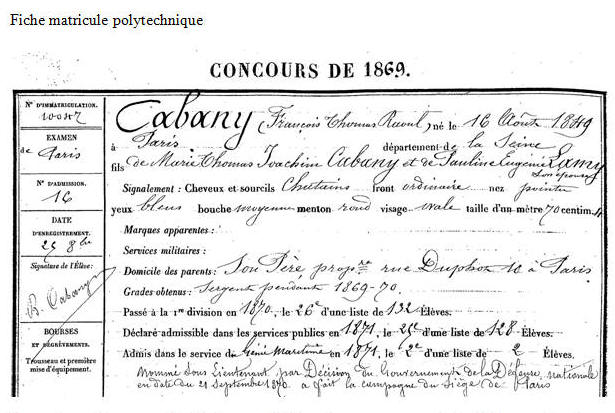 Fiche matricule polytechnique
CONCOURS DE 1869.
N° D'IMMATRICULATION.
10047
EXAMEN
de Paris
N° D'ADMISSION.
16
DATE
D'ENREGISTREMENT.
25 8bre
Signature de l'Élève:
R. Cabany
BOURSES
ET DÉGRÈVEMENTS.
Trousseau et première
mise d'équipement.
Cabany (François Thomas Raoul), né le 16 Août 1849
à Paris département de la Seine
fils de Marie Thomas Joachim Cabany et de Pauline Eugénie Lamy
son épouse
Signalement : Cheveux et sourcils Chatains front ordinaire nez pointu
yeux bleus bouche moyenne menton rond visage ovale taille d'un mètre 70 centim.
Marques apparentes :
Services militaires :
Domicile des parents : Son Père, propre rue Duphot 10 à Paris
Grades obtenus : Sergent pendant 1869-70.
Passé à la 1re division en 1870, le 26e d'une liste de 132 Élèves.
Déclaré admissible dans les services publics en 1871, le 25e d'une liste de 128 Élèves.
Admis dans le service du Génie Maritime en 1871, le 2e d'une liste de 2 Élèves.
Nommé Sous Lieutenant par Décision du Gouvernement de la Défense nationale
en date du 21 Septembre 1870. a fait la campagne du Siège de Paris